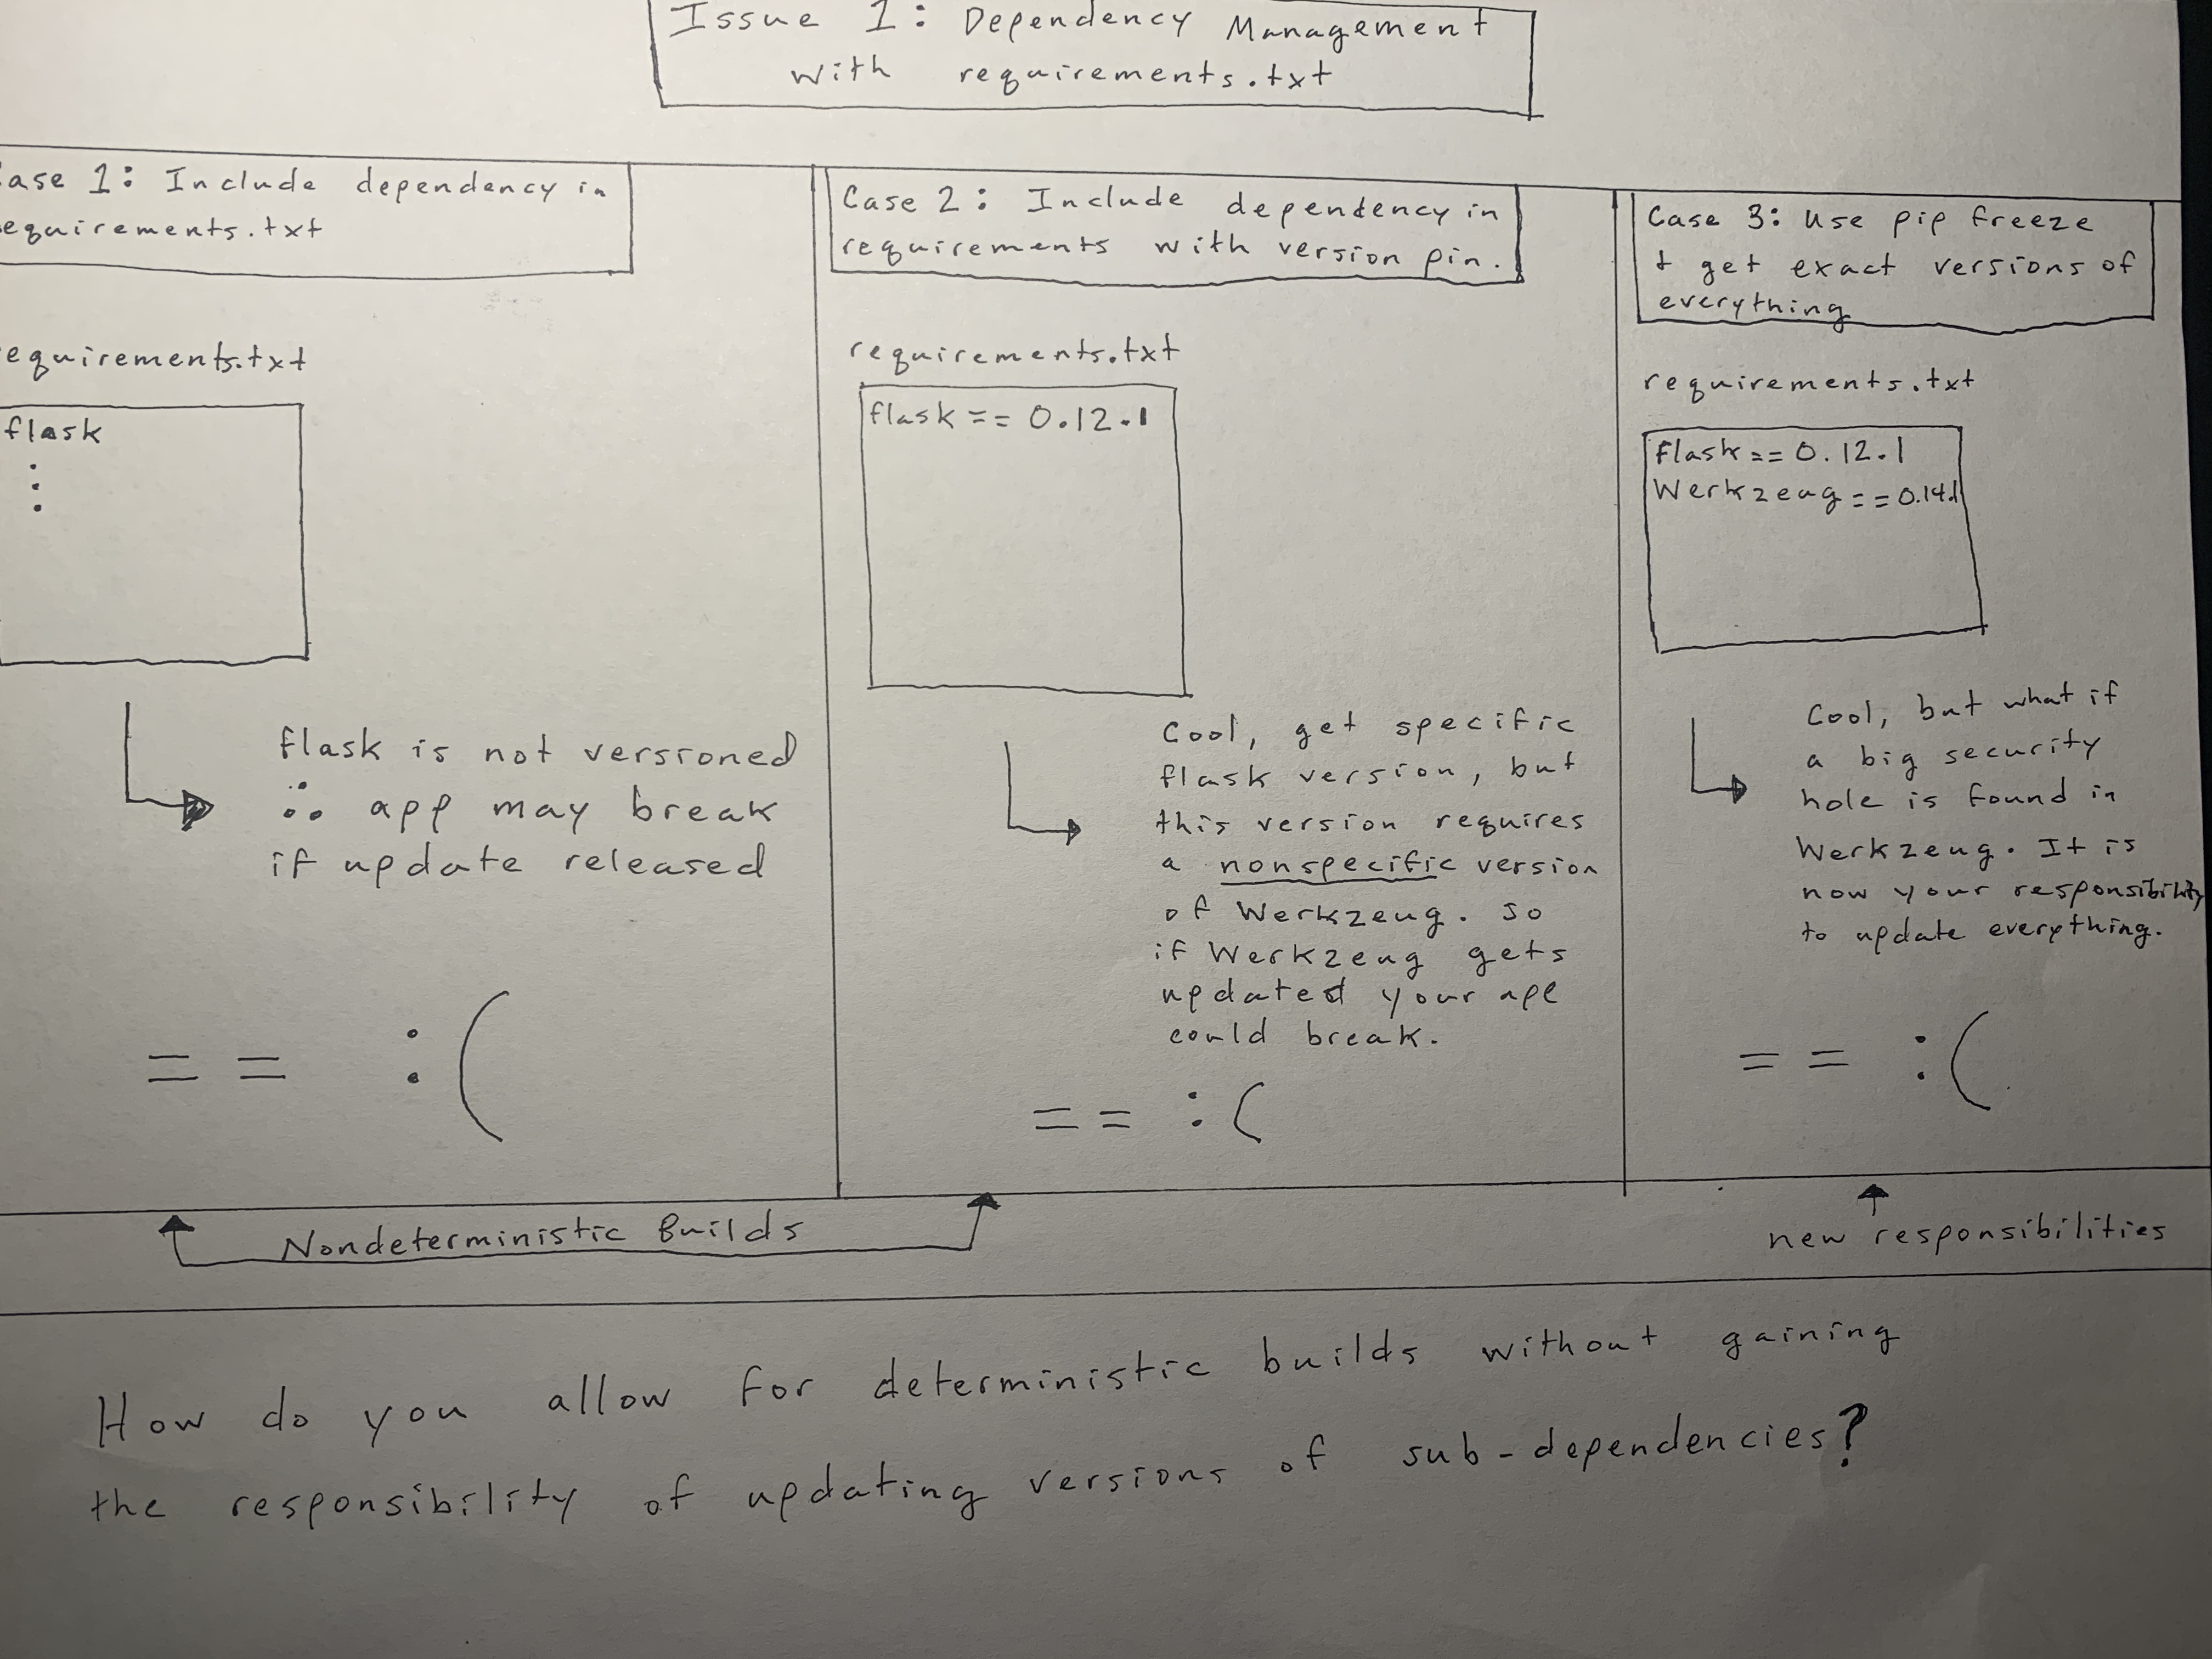 Issue 1: Dependency Management
with requirements.txt
ase 1: Include dependency in
equirements.txt
equirements.txt
flask
flask is not versioned
∴ app may break
if update released
== :(
Case 2: Include dependency in
requirements with version pin.
requirements.txt
flask == 0.12.1
Cool, get specific
flask version, but
this version requires
a nonspecific version
of Werkzeug. So
if Werkzeug gets
updated your app
could break.
== :(
Case 3: Use pip freeze
+ get exact versions of
everything
requirements.txt
Flask == 0.12.1
Werkzeug == 0.14.1
Cool, but what if
a big security
hole is found in
Werkzeug. It is
now your responsibility
to update everything.
== :(
Nondeterministic Builds
new responsibilities
How do you allow for deterministic builds without gaining
the responsibility of updating versions of sub-dependencies?